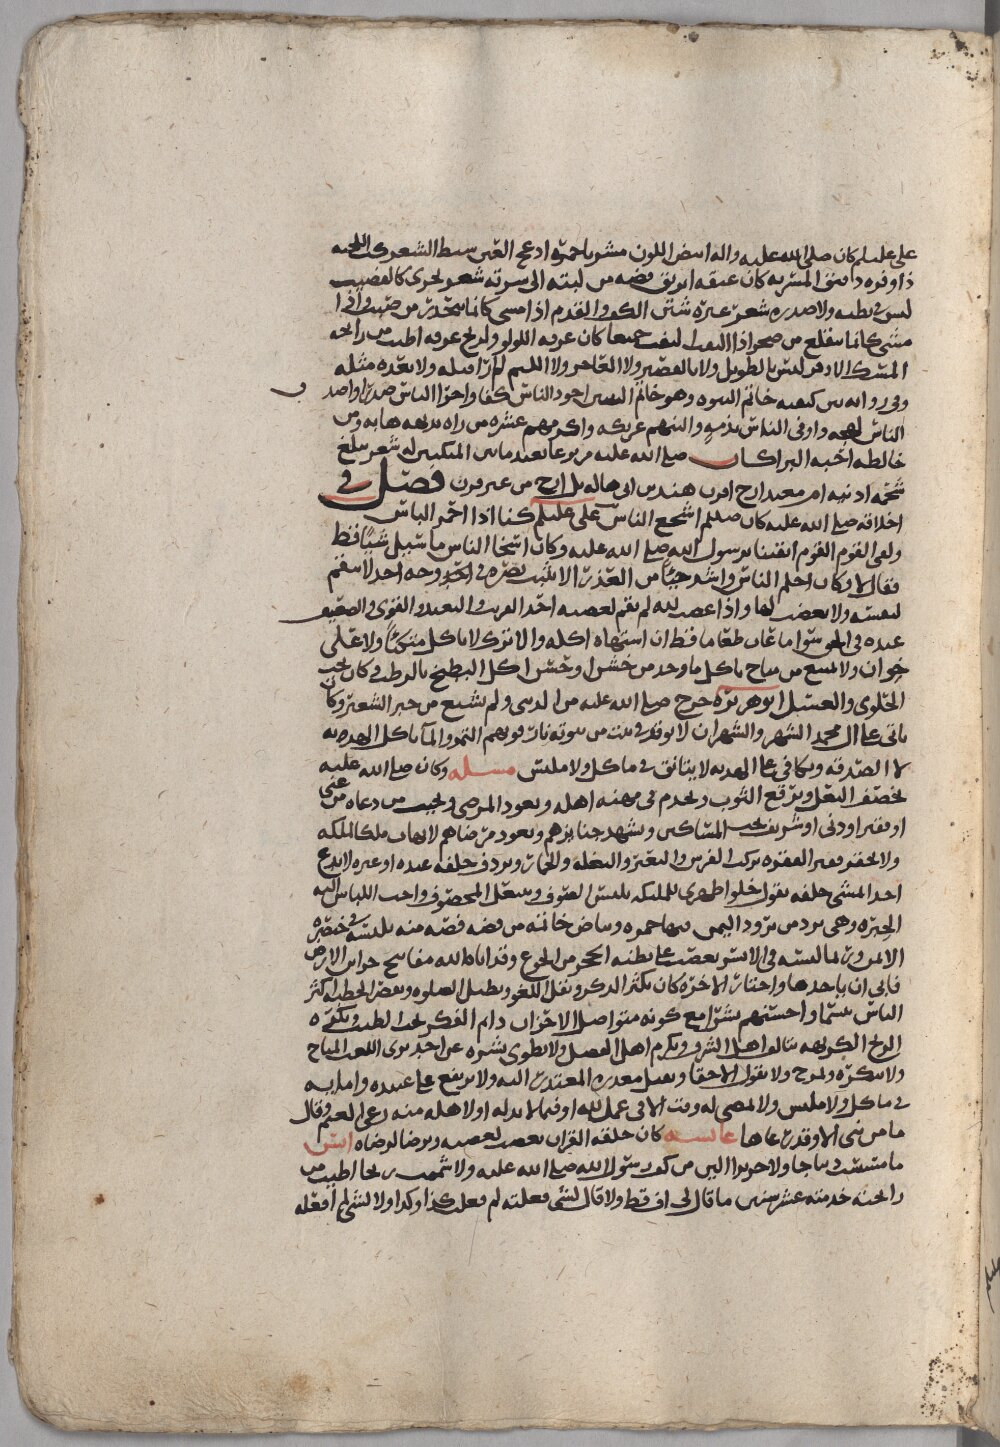 علي عليلم كان صلى الله عليه واله ابيض اللون مشربا حمرة ادعج العين سبط الشعر كث اللحيه
ذا وفره دقيق المسربه كان عنقه ابريق فضه من لبته الى سرته شعر يجري كالقضيب
ليس في بطنه ولا صدره شعر غيره شثن الكف والقدم اذا مشى كانما ينحدر من صبب واذا
مشى كانما يتقلع من صخر اذا التفت التفت جميعا كان عرقه اللولو ولريح عرقه اطيب من رائحه
المسك الاذفر ليس بالطويل ولا بالقصير ولا العاجز ولا اللئيم لم ار قبله ولا بعده مثله
وفي روايه بين كتفيه خاتم النبوه وهو خاتم النبيين اجود الناس كفا واجرا الناس صدرا واصدق
الناس لهجه واوفى الناس بذمه والينهم عريكه واكرمهم عشره من راه بديهه هابه ومن
خالطه احبه البرا كان صلى الله عليه مربوعا بعيد ما بين المنكبين له شعر يبلغ
شحمة اذنيه ام معبد ازج اقرن هند بن ابي هاله بل ازج من غير قرن فصل في
اخلاقه صلى الله عليه كان صللم اشجع الناس علي عليلم كنا اذا احمر الباس
ولقي القوم القوم اتقينا برسول الله صلى الله عليه وكان اسخا الناس ما سيل شيًا قط
فقال لا وكان احلم الناس واشد حياً من العذرى لا يثبت بصره في وجه احد لا ينتقم
لنفسه ولا يغضب لها واذا غضب لله لم يقم لغضبه احد القريب والبعيد والقوي والضعيف
عنده في الحق سوا ما عاب طعاما قط ان اشتهاه اكله والا تركه لا ياكل متكئاً ولا على
خوان ولا يمتنع من مباح ياكل ما وجد من خشن وحسن اكل البطيخ بالرطب وكان يحب
الحلوى والعسل ابو هريرة خرج صلى الله عليه من الدنيا ولم يشبع من خبز الشعير وكان
ياتي على ال محمد الشهر والشهران لا يوقد في بيت من بيوته نار قوتهم التمر والمآ ياكل الهديه
لا الصدقه ويكافي على الهديه لا يتانق في ماكل ولا ملبس مسله وكان صلى الله عليه
يخصف النعل ويرقع الثوب ويخدم في مهنه اهله ويعود المرضى ويجيب من دعاه من غني
او فقير او دني او شريف يحب المساكين ويشهد جنايزهم ويعود مرضاهم لا يهاب ملكا لملكه
ولا يحقر فقيرا لفقره يركب الفرس والبعير والبغله والحمار ويردف خلفه عبده او غيره لا يدع
احدا يمشي خلفه يقول خلوا ظهري للمليكه يلبس الصوف وينتعل المخصوف واحب اللباس اليه
الحبره وهي برد من برود اليمن فيها حمره وبياض خاتمه من فضه فصه منه يلبسه في خنصره
الايمن وربما لبسه في الايسر يعصب على بطنه الحجر من الجوع وقد اتاه الله مفاتيح خزاين الارض
فابى ان ياخذها واختار الاخره كان يكثر الذكر ويقل اللغو ويطيل الصلوه ويقصر الخطبه اكثر
الناس تبسما واحسنهم بشرا مع كونه متواصل الاحزان دايم الفكر يحب الطيب ويكره
الريح الكريهه يتالف اهل الشرف ويكرم اهل الفضل ولا يطوي بشره عن احد يرى اللعب المباح
ولا ينكره ويمزح ولا يقول الا حقا ويقبل معذرة المعتذر اليه ولا يرتفع على عبيده وامايه
في ماكل ولا ملبس ولا يمضي له وقت الا في عمل لله او فيما لا بد له او لاهله منه رعى الغنم وقال
ما من نبي الا وقد رعاها عايشه كان خلقه القران يغضب لغضبه ويرضا لرضاه انس
ما مسست ديباجا ولا حريرا الين من كف رسول الله صلى الله عليه ولا شممت ريحا اطيب من
رائحته خدمته عشر سنين ما قال لي اف قط ولا قال لشي فعلته لم فعلت كذا وكذا ولا لشي لم افعله